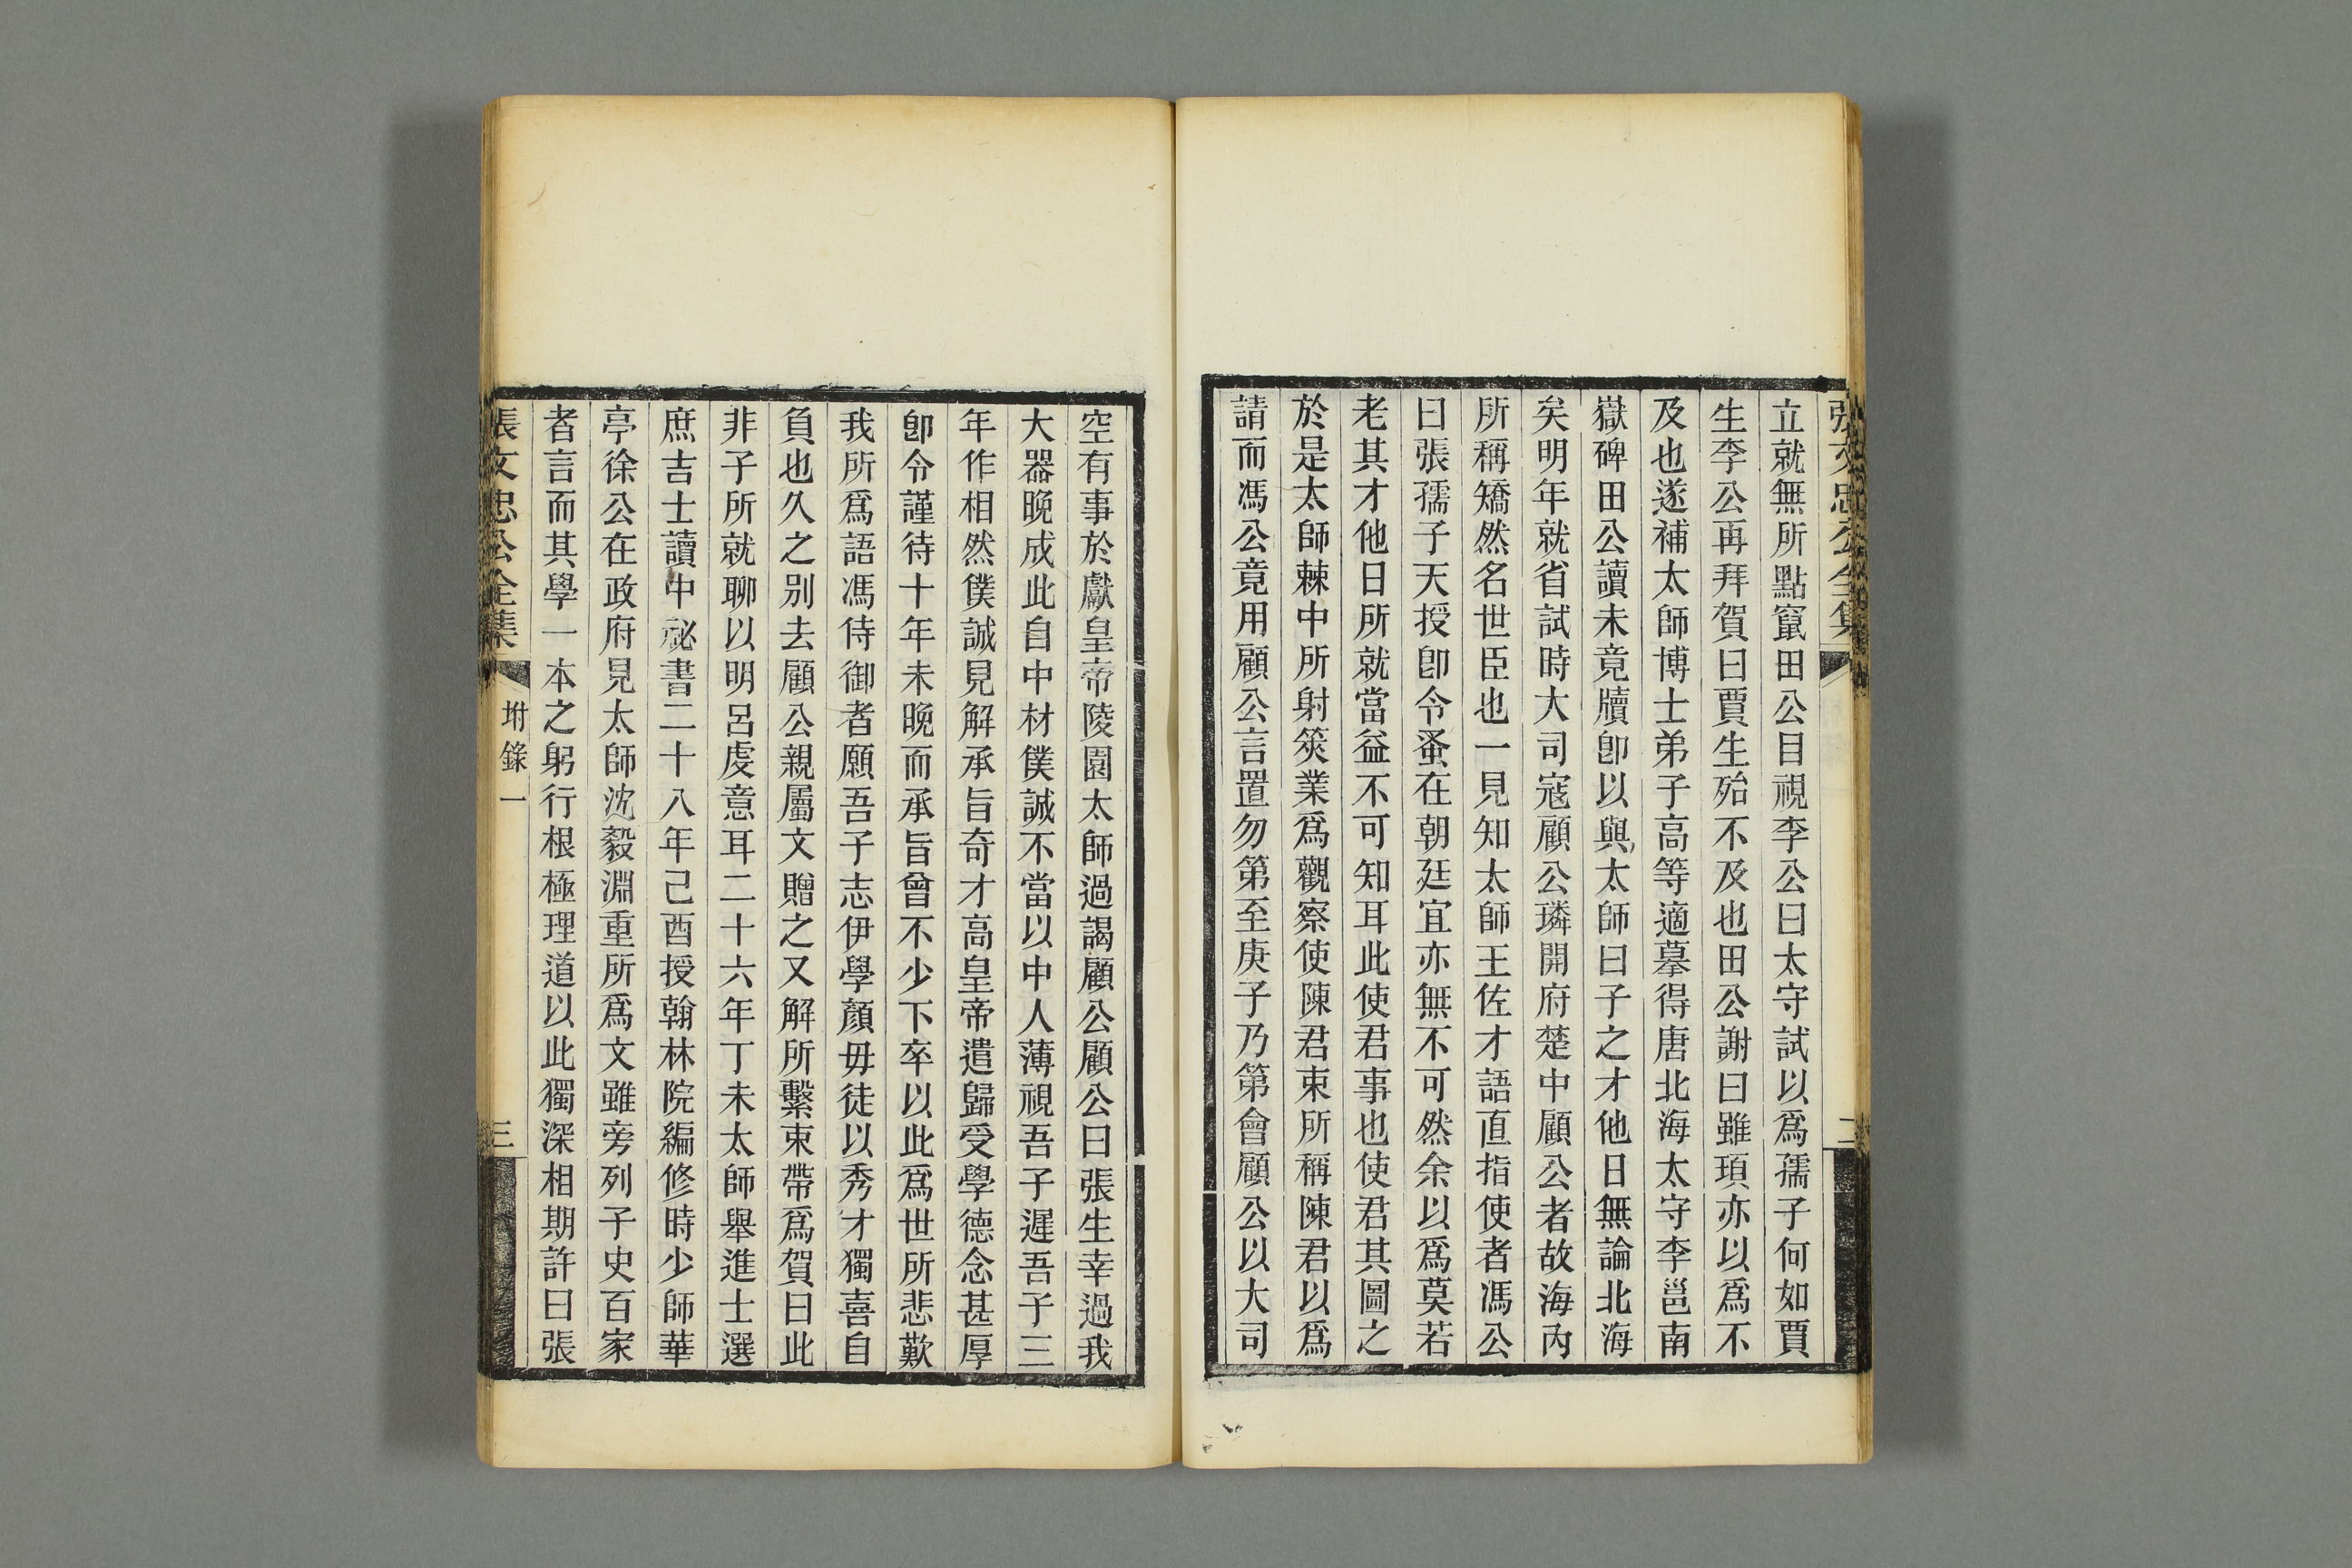 張文忠公全集
二
立就無所點竄田公目視李公曰太守試以爲孺子何如賈
生李公再拜賀曰賈生殆不及也田公謝曰雖頊亦以爲不
及也遂補太師博士弟子高等適摹得唐北海太守李邕南
嶽碑田公讀未竟牘卽以與太師曰子之才他日無論北海
矣明年就省試時大司寇顧公璘開府楚中顧公者故海內
所稱矯然名世臣也一見知太師王佐才語直指使者馮公
曰張孺子天授卽令蚤在朝廷宜亦無不可然余以爲莫若
老其才他日所就當益不可知耳此使君事也使君其圖之
於是太師棘中所射筴業爲觀察使陳君束所稱陳君以爲
請而馮公竟用顧公言置勿第至庚子乃第會顧公以大司
空有事於獻皇帝陵園太師過謁顧公顧公曰張生幸過我
大器晚成此自中材僕誠不當以中人薄視吾子遲吾子三
年作相然僕誠見解承旨奇才高皇帝遣歸受學德念甚厚
卽令謹待十年未晚而承旨曾不少下卒以此爲世所悲歎
我所爲語馮侍御者願吾子志伊學顏毋徒以秀才獨喜自
負也久之别去顧公親屬文贈之又解所繫束帶爲賀曰此
非子所就聊以明呂虔意耳二十六年丁未太師舉進士選
庶吉士讀中祕書二十八年己酉授翰林院編修時少師華
亭徐公在政府見太師沈毅淵重所爲文雖旁列子史百家
者言而其學一本之躬行根極理道以此獨深相期許曰張
張文忠公全集
坿錄一
三